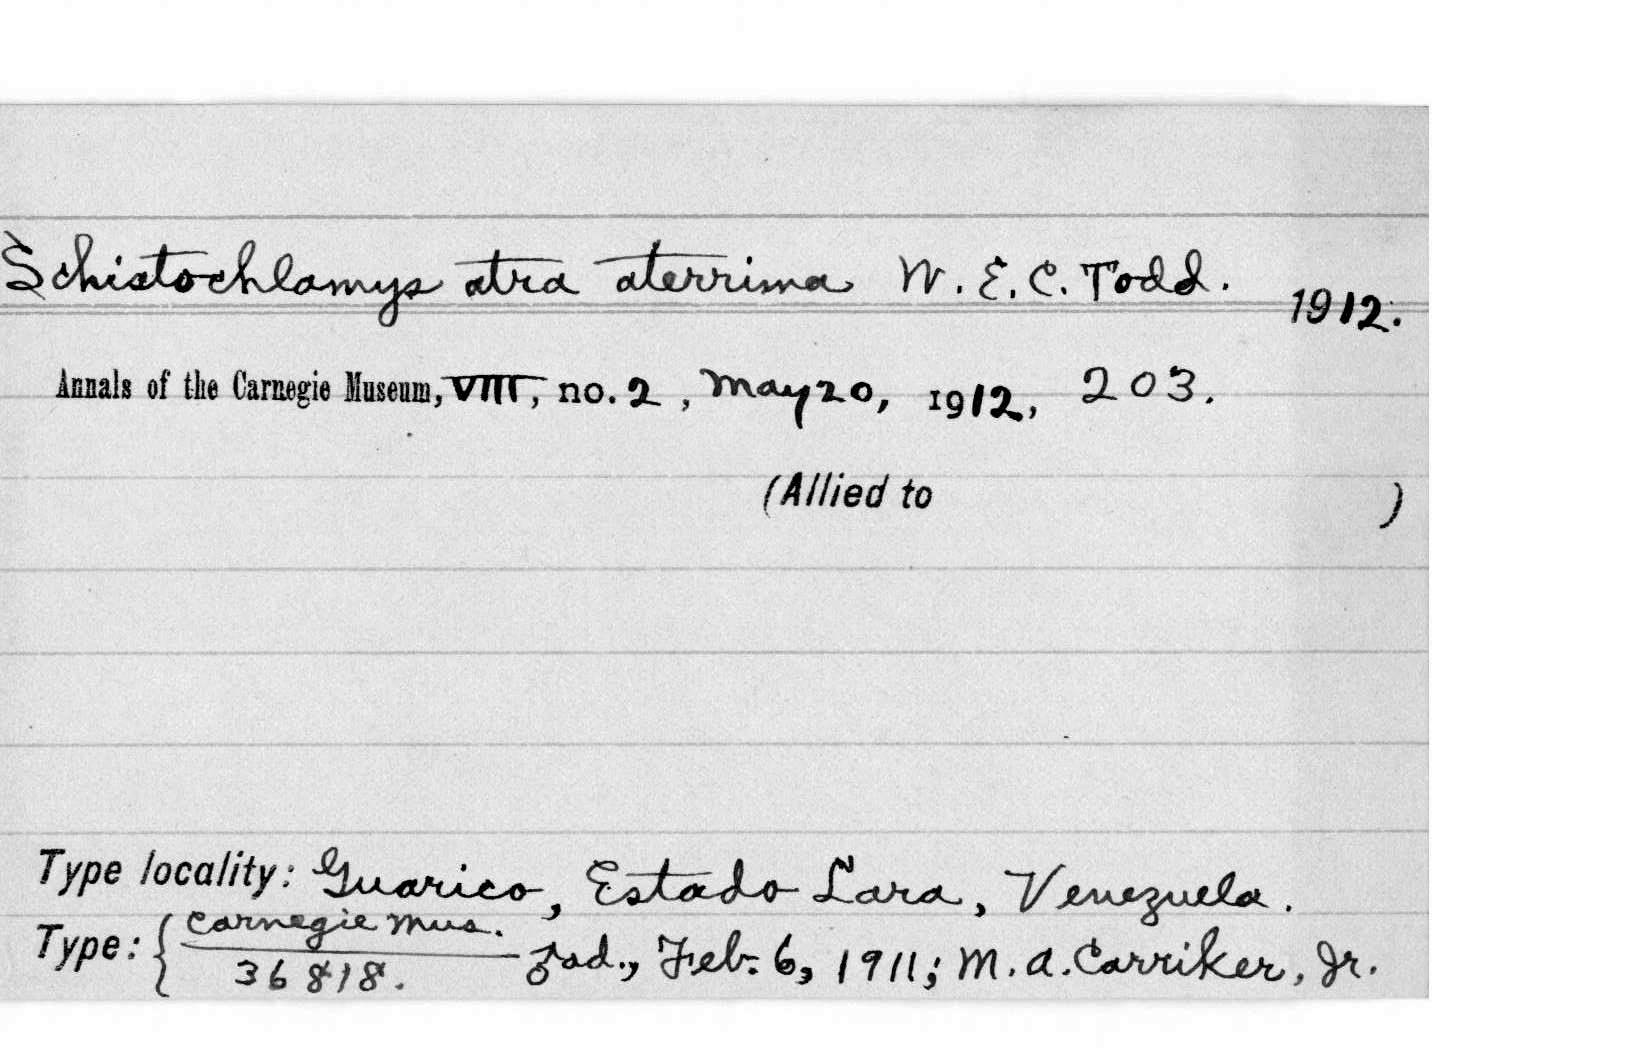 Schistochlamys atra aterrima W. E. C. Todd. 1912.
Annals of the Carnegie Museum, VIII, no. 2, May 20, 1912, 203.
(Allied to )
Type locality: Guarico, Estado Lara, Venezuela.
Type: { Carnegie Mus.
36818. ♂ ad., Feb. 6, 1911; M. A. Carriker, Jr.